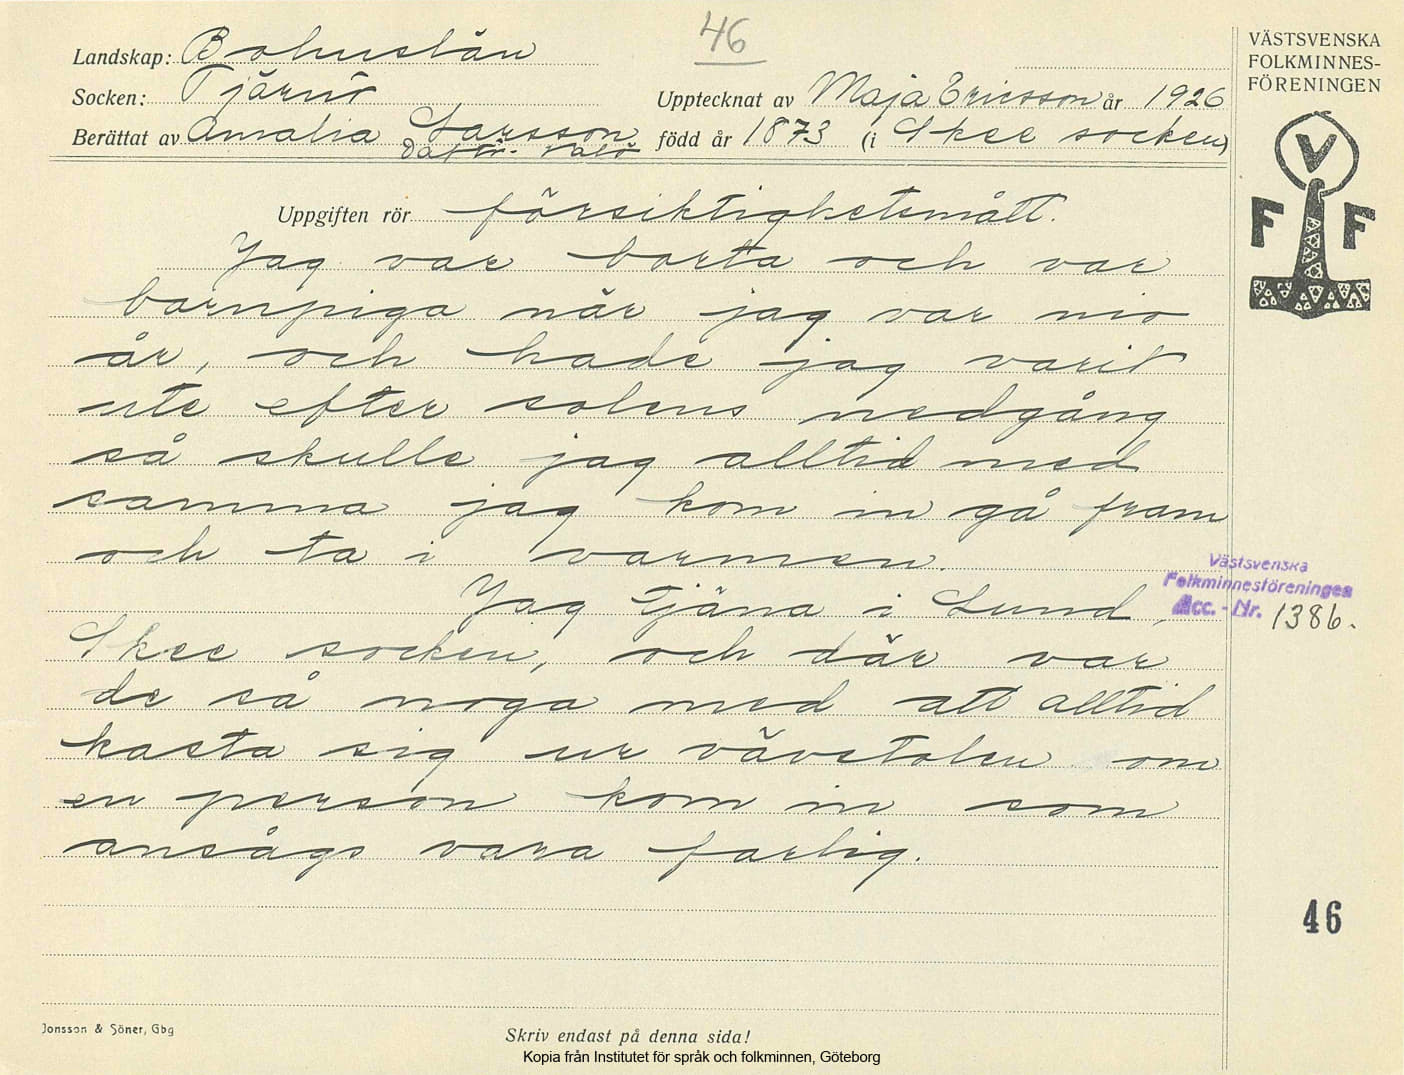 46
Landskap: Bohuslän
VÄSTSVENSKA
FOLKMINNES-
FÖRENINGEN
Socken: Tjärnö
Upptecknat av Maja Ericsson år 1926
Berättat av Amalia Larsson född år 1873 (i Skee socken)
V
F F
Uppgiften rör försiktighetsmått.
Jag var borta och var
barnpiga när jag var nio
år, och hade jag varit
ute efter solens nedgång
så skulle jag alltid med
samma jag kom in gå fram
och ta i varmen.
Västsvenska
Folkminnesföreningen
Acc. - Nr. 1386.
Jag tjäna i Lund,
Skee socken, och där var
de så noga med att alltid
kasta sig ur vävstolen om
en person kom in som
ansågs vara farlig.
46
Jonsson & Söner, Gbg
Skriv endast på denna sida!
Kopia från Institutet för språk och folkminnen, Göteborg